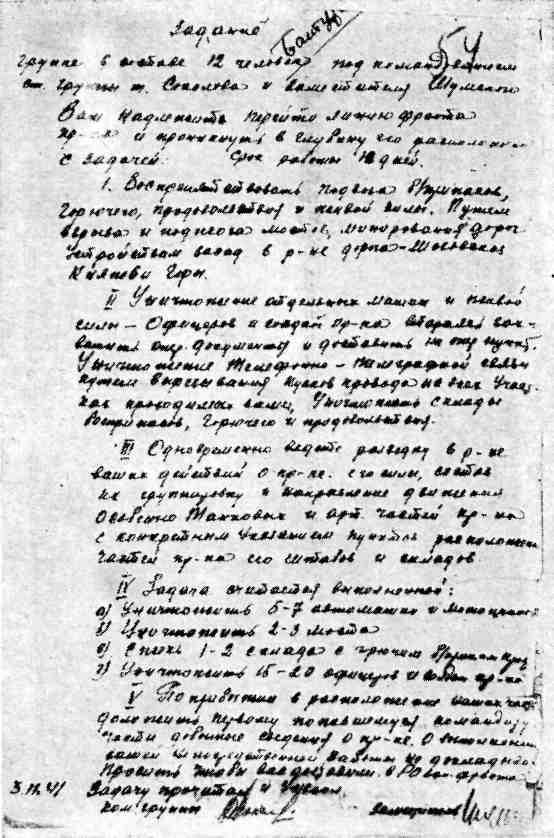 Задание
группе в составе 12 человек под командованием
ст. группы т. Соколова и заместителя Шумского
Вам надлежит перейти линию фронта
пр-ка и проникнуть в глубину его расположения
с задачей. Срок работы дней.
1. Воспрепятствовать подвозу боеприпасов,
горючего, продовольствия и живой силы. Путем
взрыва и поджога мостов, минирования дорог
засад в р-не дорога – Шаховская
Княжьи Горы.
II Уничтожение отдельных машин и живой
силы – офицеров и солдат пр-ка стараясь зах-
ватить опер. документы и доставить на опер. пункт.
Уничтожение телефонно – телеграфной связи
путем вырезывания кусков провода на всех участ-
ках проводимых вами, уничтожить склады
боеприпасов, горючего и продовольствия.
III Одновременно ведете разведку в р-не
ваших действий о пр-ке. его силы, состав
их группировку и направление движения
особенно танковых и арт. частей пр-ка
с конкретным указанием пунктов расположения
частей пр-ка его штабов и складов
IV Задача считается выполненной:
а) Уничтожить 5-7 автомашин и мотоциклов
б) Уничтожить 2-3 моста
в) Сжечь 1-2 склада с горючим
г) Уничтожить 15-20 офицеров и пр-ка
V По прибытии в расположение наших частей
доложить первому попавшемуся командиру
части данные сведения о пр-ке. О выполнении
вашей непосредственной работы не докладывать.
Просить чтобы вас доставили в РО фронта
3.11.41 Задачу прочитал и уяснил
ком группы заместитель